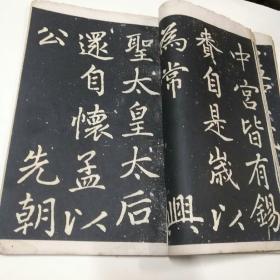 中宮皆有錫
賚自是歲以
為常 興
聖太皇太后
還自懷孟以
公 先朝